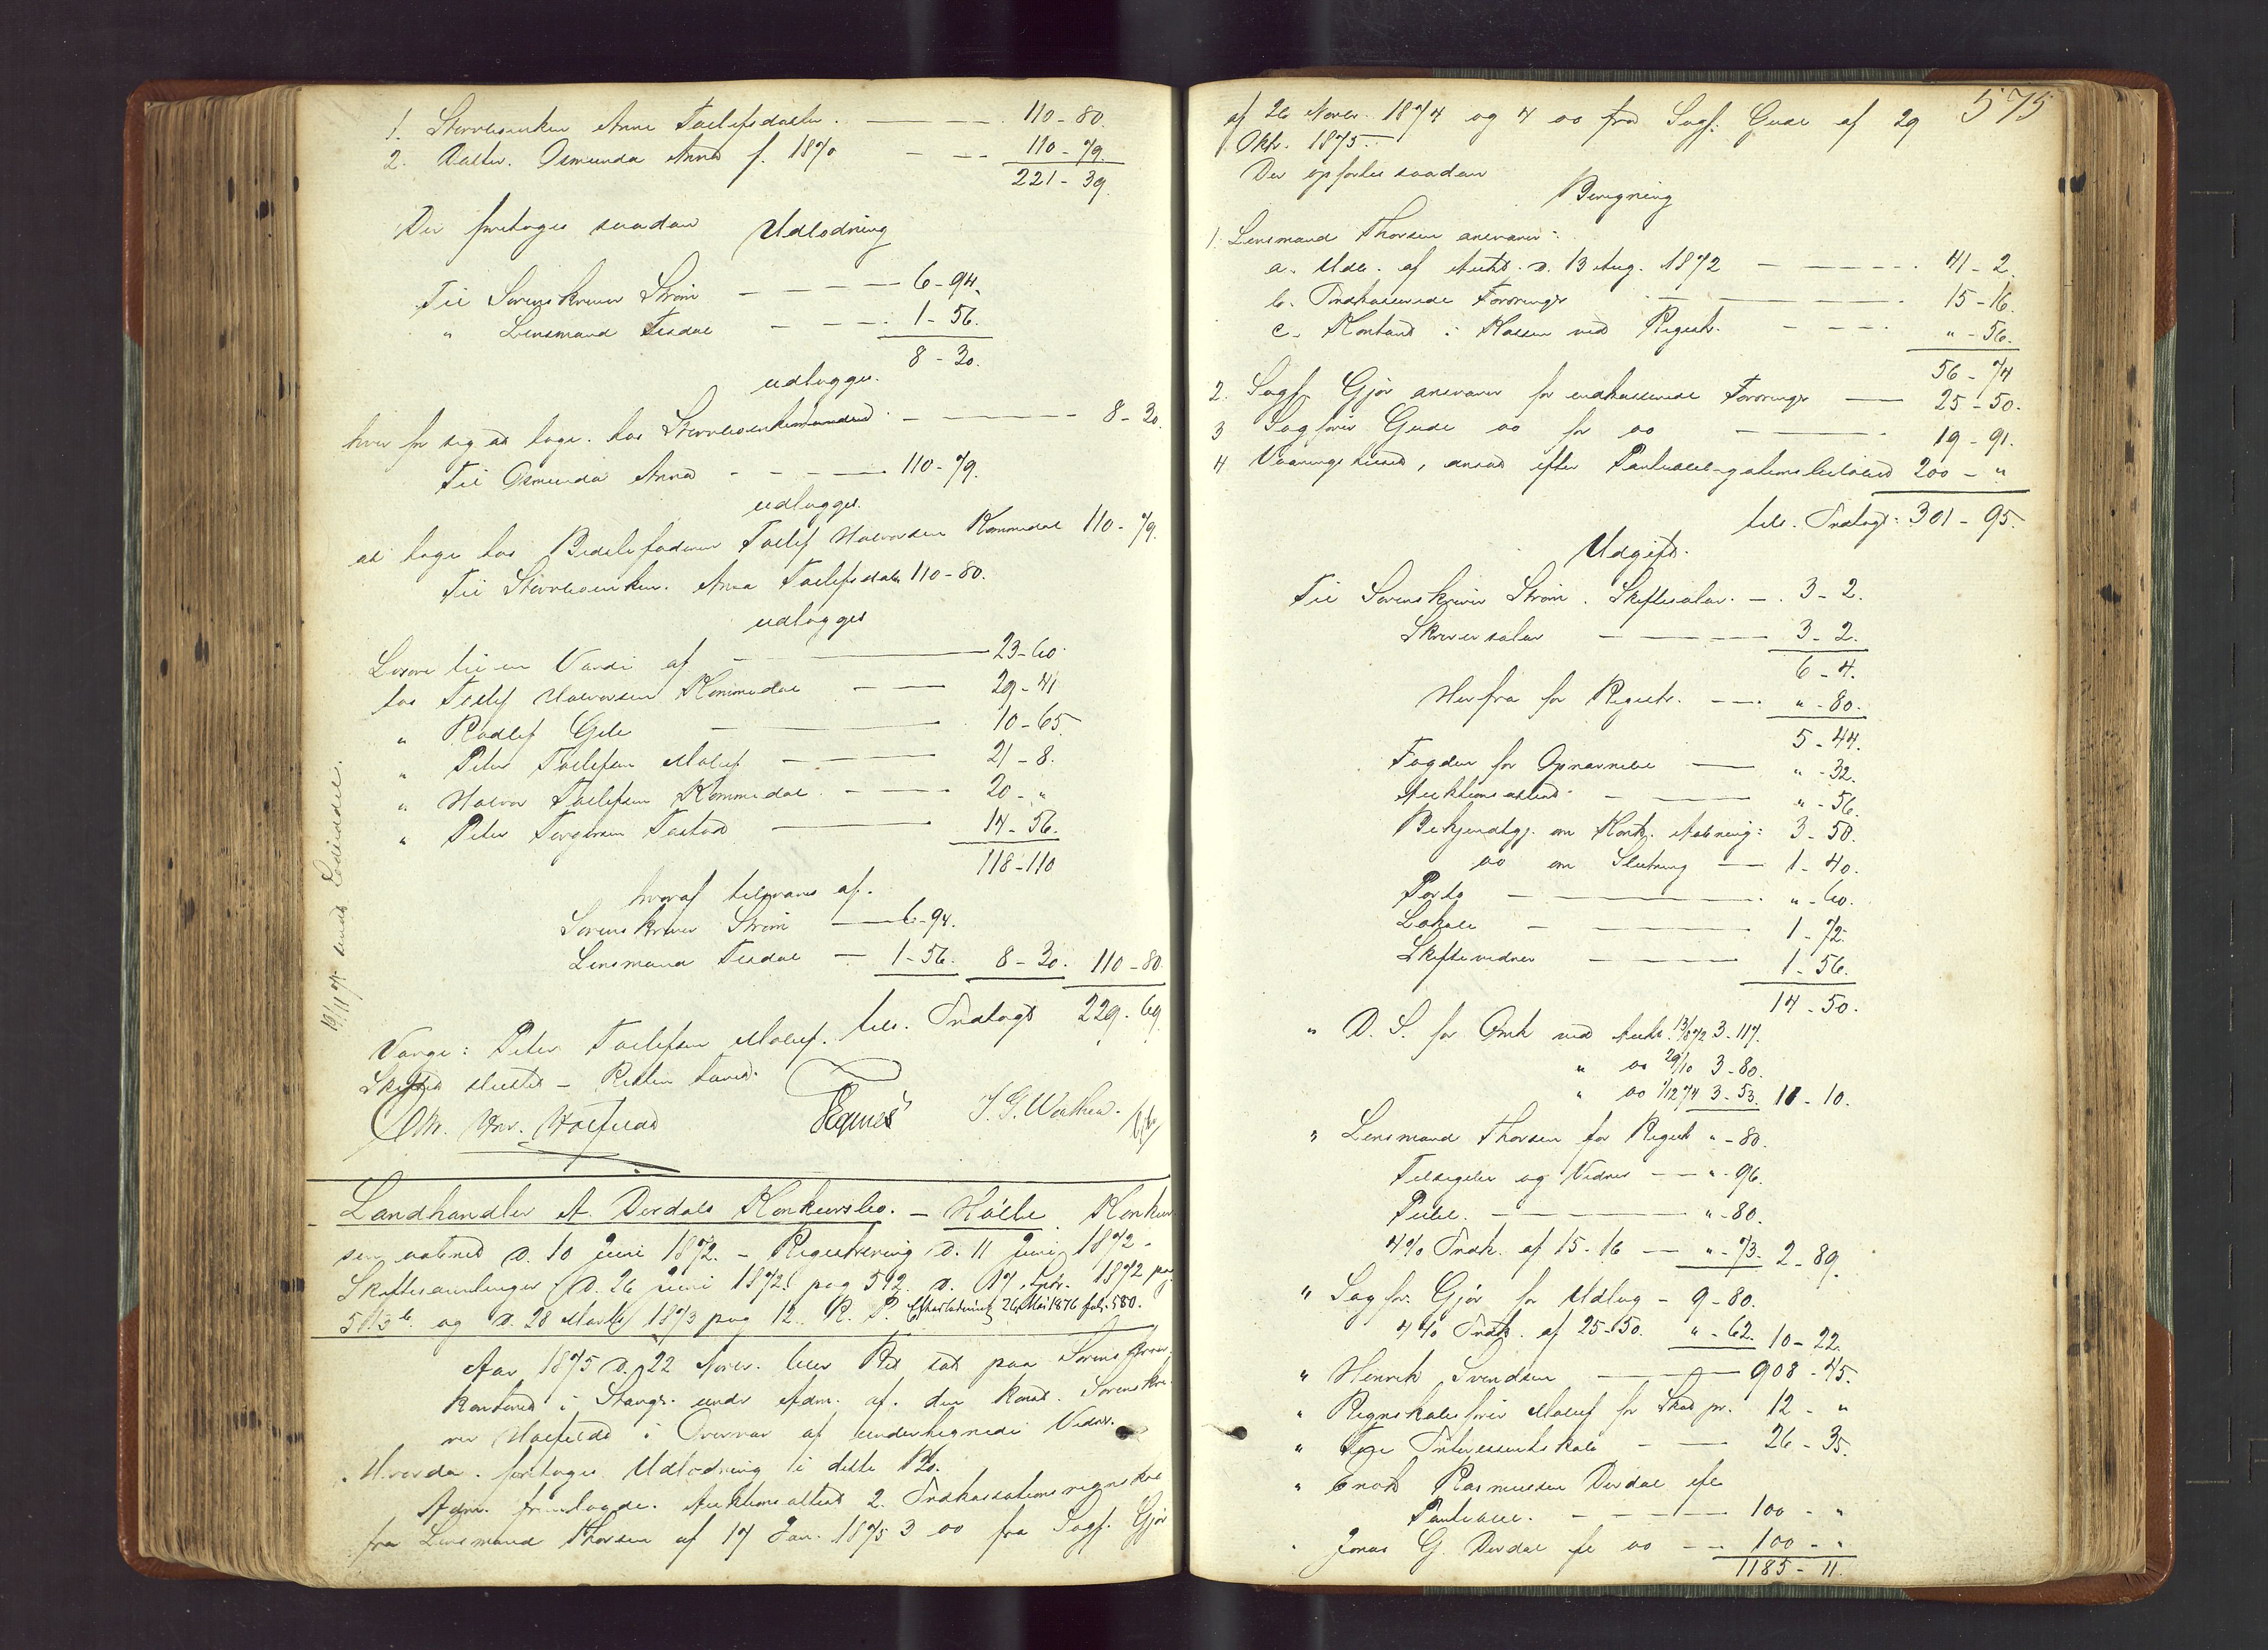 1. Stervboenken Anna Toelefsdatter. — — — 110-80.
2. Datter. Osmunda Anna f. 1870 — — — 110-79.
221-39.
Der foretoges saadan Udlodning
Til Sorenskriver Strøm — — — — 6-94.
" Lensmand Tesdal — — — 1-56.
8-30.
udlægges.
hver for sig at tage hos Stervboenkemanden — — — 8-30.
Til Osmunda Anna - - - — 110-79.
udlægges.
at tage hos Bedstefaderen Toelef Halvorsen Kommedal 110-79.
Til Stervboenken. Anna Toelefsdatr 110-80.
udlægges
Løsøre til en Værdi af — — 23-60.
hos Toelef Halvorsen Kommedal — — 29-41
" Rødlef Gile — — 10-65
" Peter Toelefsen Maluf — — 21-8.
" Halvor Toelefsen Kommedal. — — 20-"
" Peter Torgersen Tastad — — 14-56.
118-110
hvoraf tilsvares af.
Sorenskriver Strøm — 6-94.
Lensmand Tesdal — 1-56. 8-30. 110-80.
tils. Indtægt 229-69
Værge: Peter Toelefsen Maluf.
Skiftet sluttet - Retten hævet.
Chr. Hnr. Hoefeldt
Egenes
T. G. Worken.
Landhandler A. Dirdals Konkursbo. — Hølle. Konkur-
sen aabnet d. 10 Juni 1872. — Registrering d. 11 Juni 1872 -
Skiftesamlinger d. 26 Juni 1872 pag 512. d. 17. Sptr. 1872 pag
513 b. og d. 28 Marts 1873 pag 12. R. P. Efterlodning 26 Mai 1876 fol. 580.
Aar 1875 d. 22 Novbr. blev Ret sat paa Sorenskriver-
kontoret i Stavgr. under Adm. af. den const. Sorenskri-
ver Hoefeldt i Overvær af undertegnede Vidner.
Hvorda. foretoges Udlodning i dette Bo.
Adm. fremlagde. Auktionsattest 2. Indkassationsregnskab
fra Lensmand Thorsen af 17 Jan. 1875 3 do fra Sagf. Gjør
575
af 26 Novbr. 1874 og 4 do fra Sagf. Gude af 29
Oktr. 1875.
Der opførtes saadan
Beregning
1. Lensmand Thorsen ansvarer:
a. Udb. af Aukt. d. 13 Aug. 1872 — — — 41-2.
b. Indkasserede Fordringer — — — 15-16.
c. Kontant i Kassen ved Registr. - - - - "-56.
56-74
2. Sagf. Gjør ansvarer for indkasserede Fordringer — 25-50.
3 Sagfører Gude do for do — — — 19-91.
4 Vaaningshuset, ansat efter Panteobligationsbeløbet 200-"
tils. Indtægt: 301-95.
Udgift.
Til Sorenskriver Strøm. Skiftesalær. —. 3-2.
Skriversalær — — — — 3-2.
6-4.
Herfra for Registr. — — "-80.
5-44.
Fogden for Opnævnelse — — "-32.
Auktionsattest — — "-56.
Bekjendtgj. om Konk. Aabning: 3-50.
do om Slutning — — 1-40.
Porto — — — — "-60.
Lokale — — — 1-72.
Skiftevidner — — — 1-56.
14-50.
" D. S. for Omk ved Aukt. 13/8 72 3-117.
" do 29/10 3-80.
" do 1/12 74 3-53. 11-10.
" Lensmand Thorsen for Registr "-80.
Tilsigelse og Vidner — — "-96.
Publ. — — — "-80.
4% Indk. af 15-16 — — "-73. 2-89.
" Sagfør. Gjør for Udlæg - 9-80.
4% Indk. af 25-50. "-62. 10-22.
" Henrik Svendsen — — 908-45.
" Regnskabsfører Maluf for Skat pr. 12-"
" Foge Interessentskab - — 26-35.
" Enok Rasmussen Dirdal ifl
Panteobl. - - - - — 100-"
" Jonas G. Dirdal ifl do — — 100-"
1185-11.